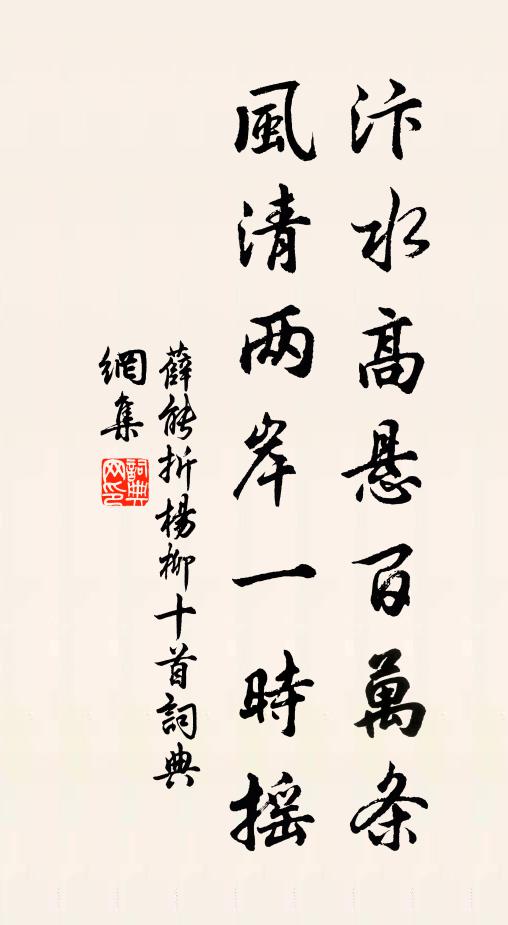 汴水高懸百萬条
風清两岸一時摇
薛能折楊柳十首詞典
網集
詞典网印